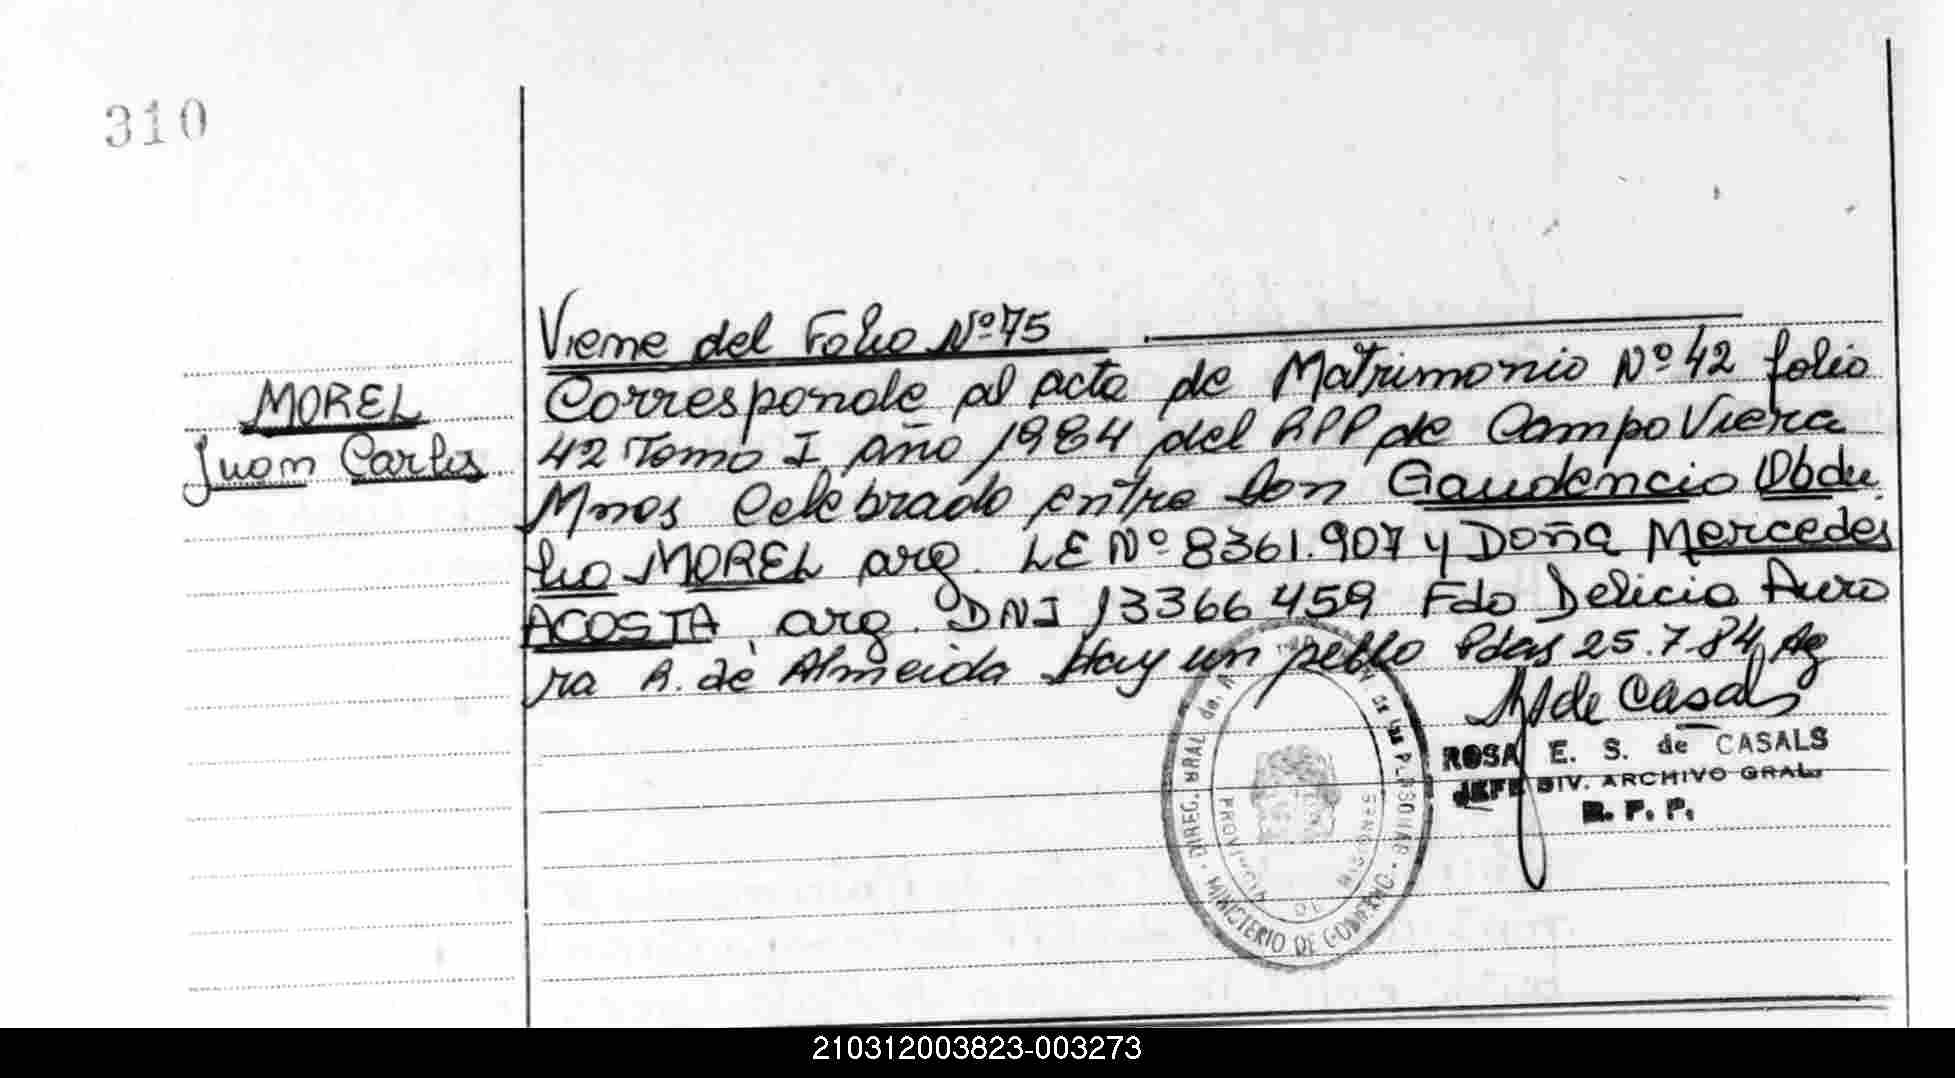 310
Viene del Folio Nº 75
MOREL
Juan Carlos
Corresponde al acta de Matrimonio Nº 42 folio
42 Tomo I año 1984 del RPP de Campo Viera
Mnes Celebrado entre Don Gaudencio Obdu
lio MOREL arg. LE Nº 8361.907 y Doña Mercedes
ACOSTA arg. DNI 13366459 Fdo Delicia Auro
ra R. de Almeida Hay un sello Pdas 25.7.84
de Casals
ROSA E. S. de CASALS
JEFE DIV. ARCHIVO GRAL.
R. P. P.
DIREC. GRAL. de las PERSONAS
MINISTERIO DE GOBIERNO
PROVINCIA DE MISIONES
210312003823-003273